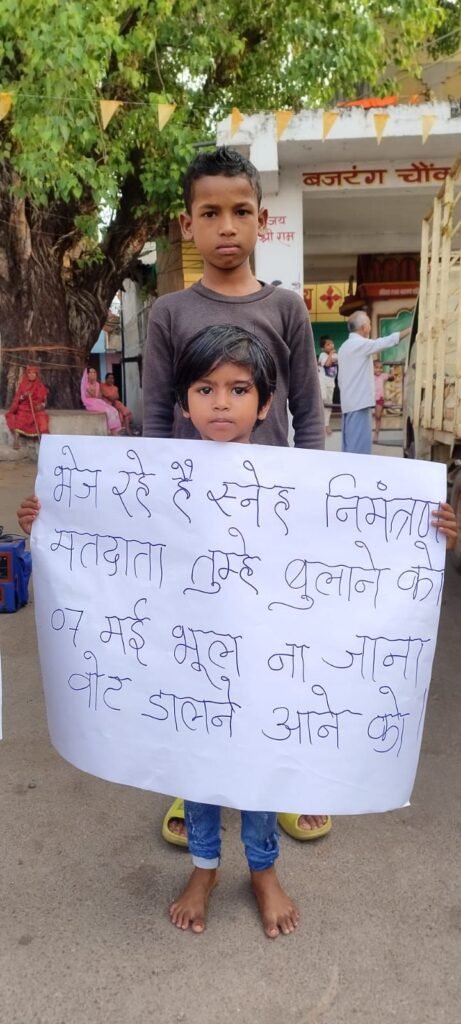 बजरंग चौक
जय
श्री राम
भेज रहे है स्नेह निमंत्रण
मतदाता तुम्हे बुलाने को
07 मई भूल ना जाना
वोट डालने आने को।